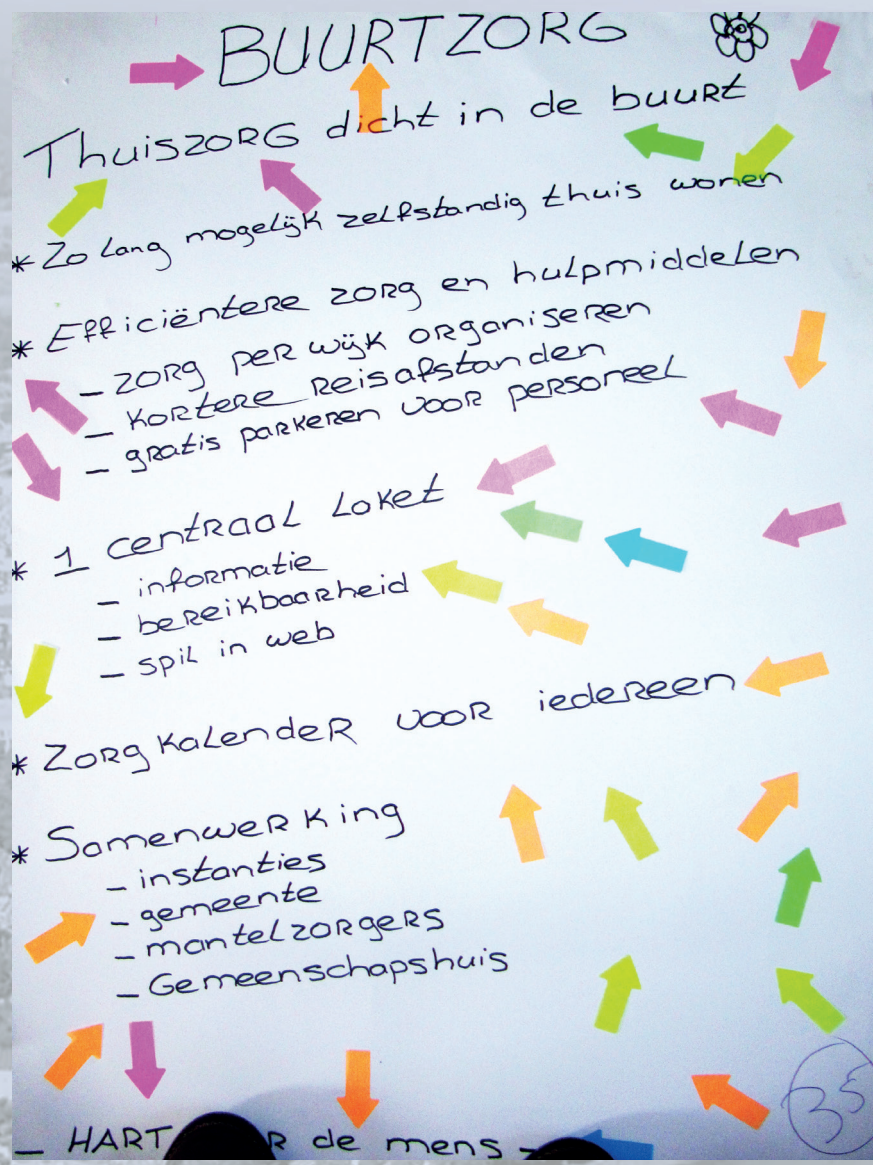 BUURTZORG
Thuiszorg dicht in de buurt
* Zo lang mogelijk zelfstandig thuis wonen
* Efficiëntere zorg en hulpmiddelen
- zorg per wijk organiseren
- kortere reisafstanden
- gratis parkeren voor personeel
* 1 centraal loket
- informatie
- bereikbaarheid
- spil in web
* Zorgkalender voor iedereen
* Samenwerking
- instanties
- gemeente
- mantelzorgers
- Gemeenschapshuis
35
- HART R de mens -